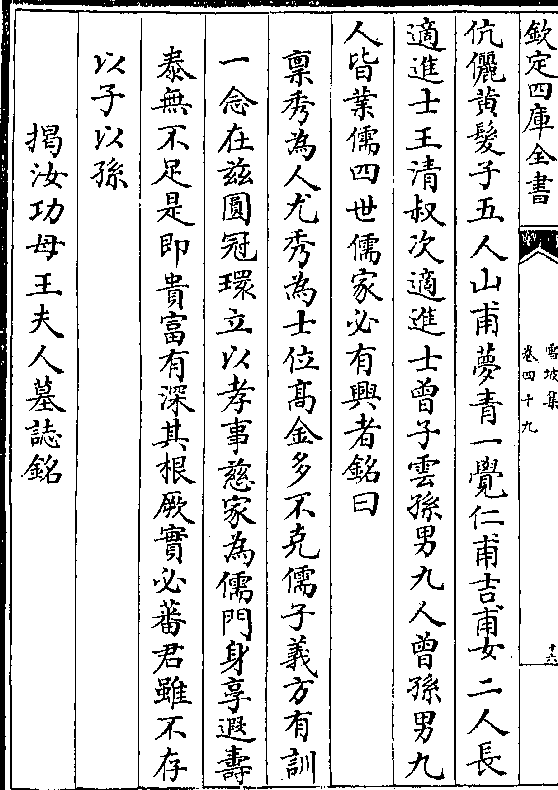 欽定四庫全書
雪坡集
卷四十九
十六
伉儷黄髮子五人山甫夢青一覺仁甫吉甫女二人長
適進士王清叔次適進士曾子雲孫男九人曾孫男九
人皆業儒四世儒家必有興者銘曰
禀秀為人尤秀為士位髙金多不克儒子義方有訓
一念在兹圓冠環立以孝事慈家為儒門身享遐壽
泰無不足是即貴富有深其根厥實必蕃君雖不存
以子以孫
揭汝功母王夫人墓誌銘